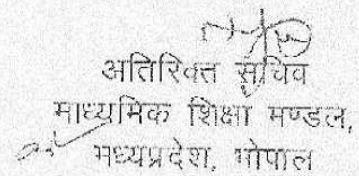 अतिरिक्त सचिव
माध्यमिक शिक्षा मण्डल,
मध्यप्रदेश, भोपाल